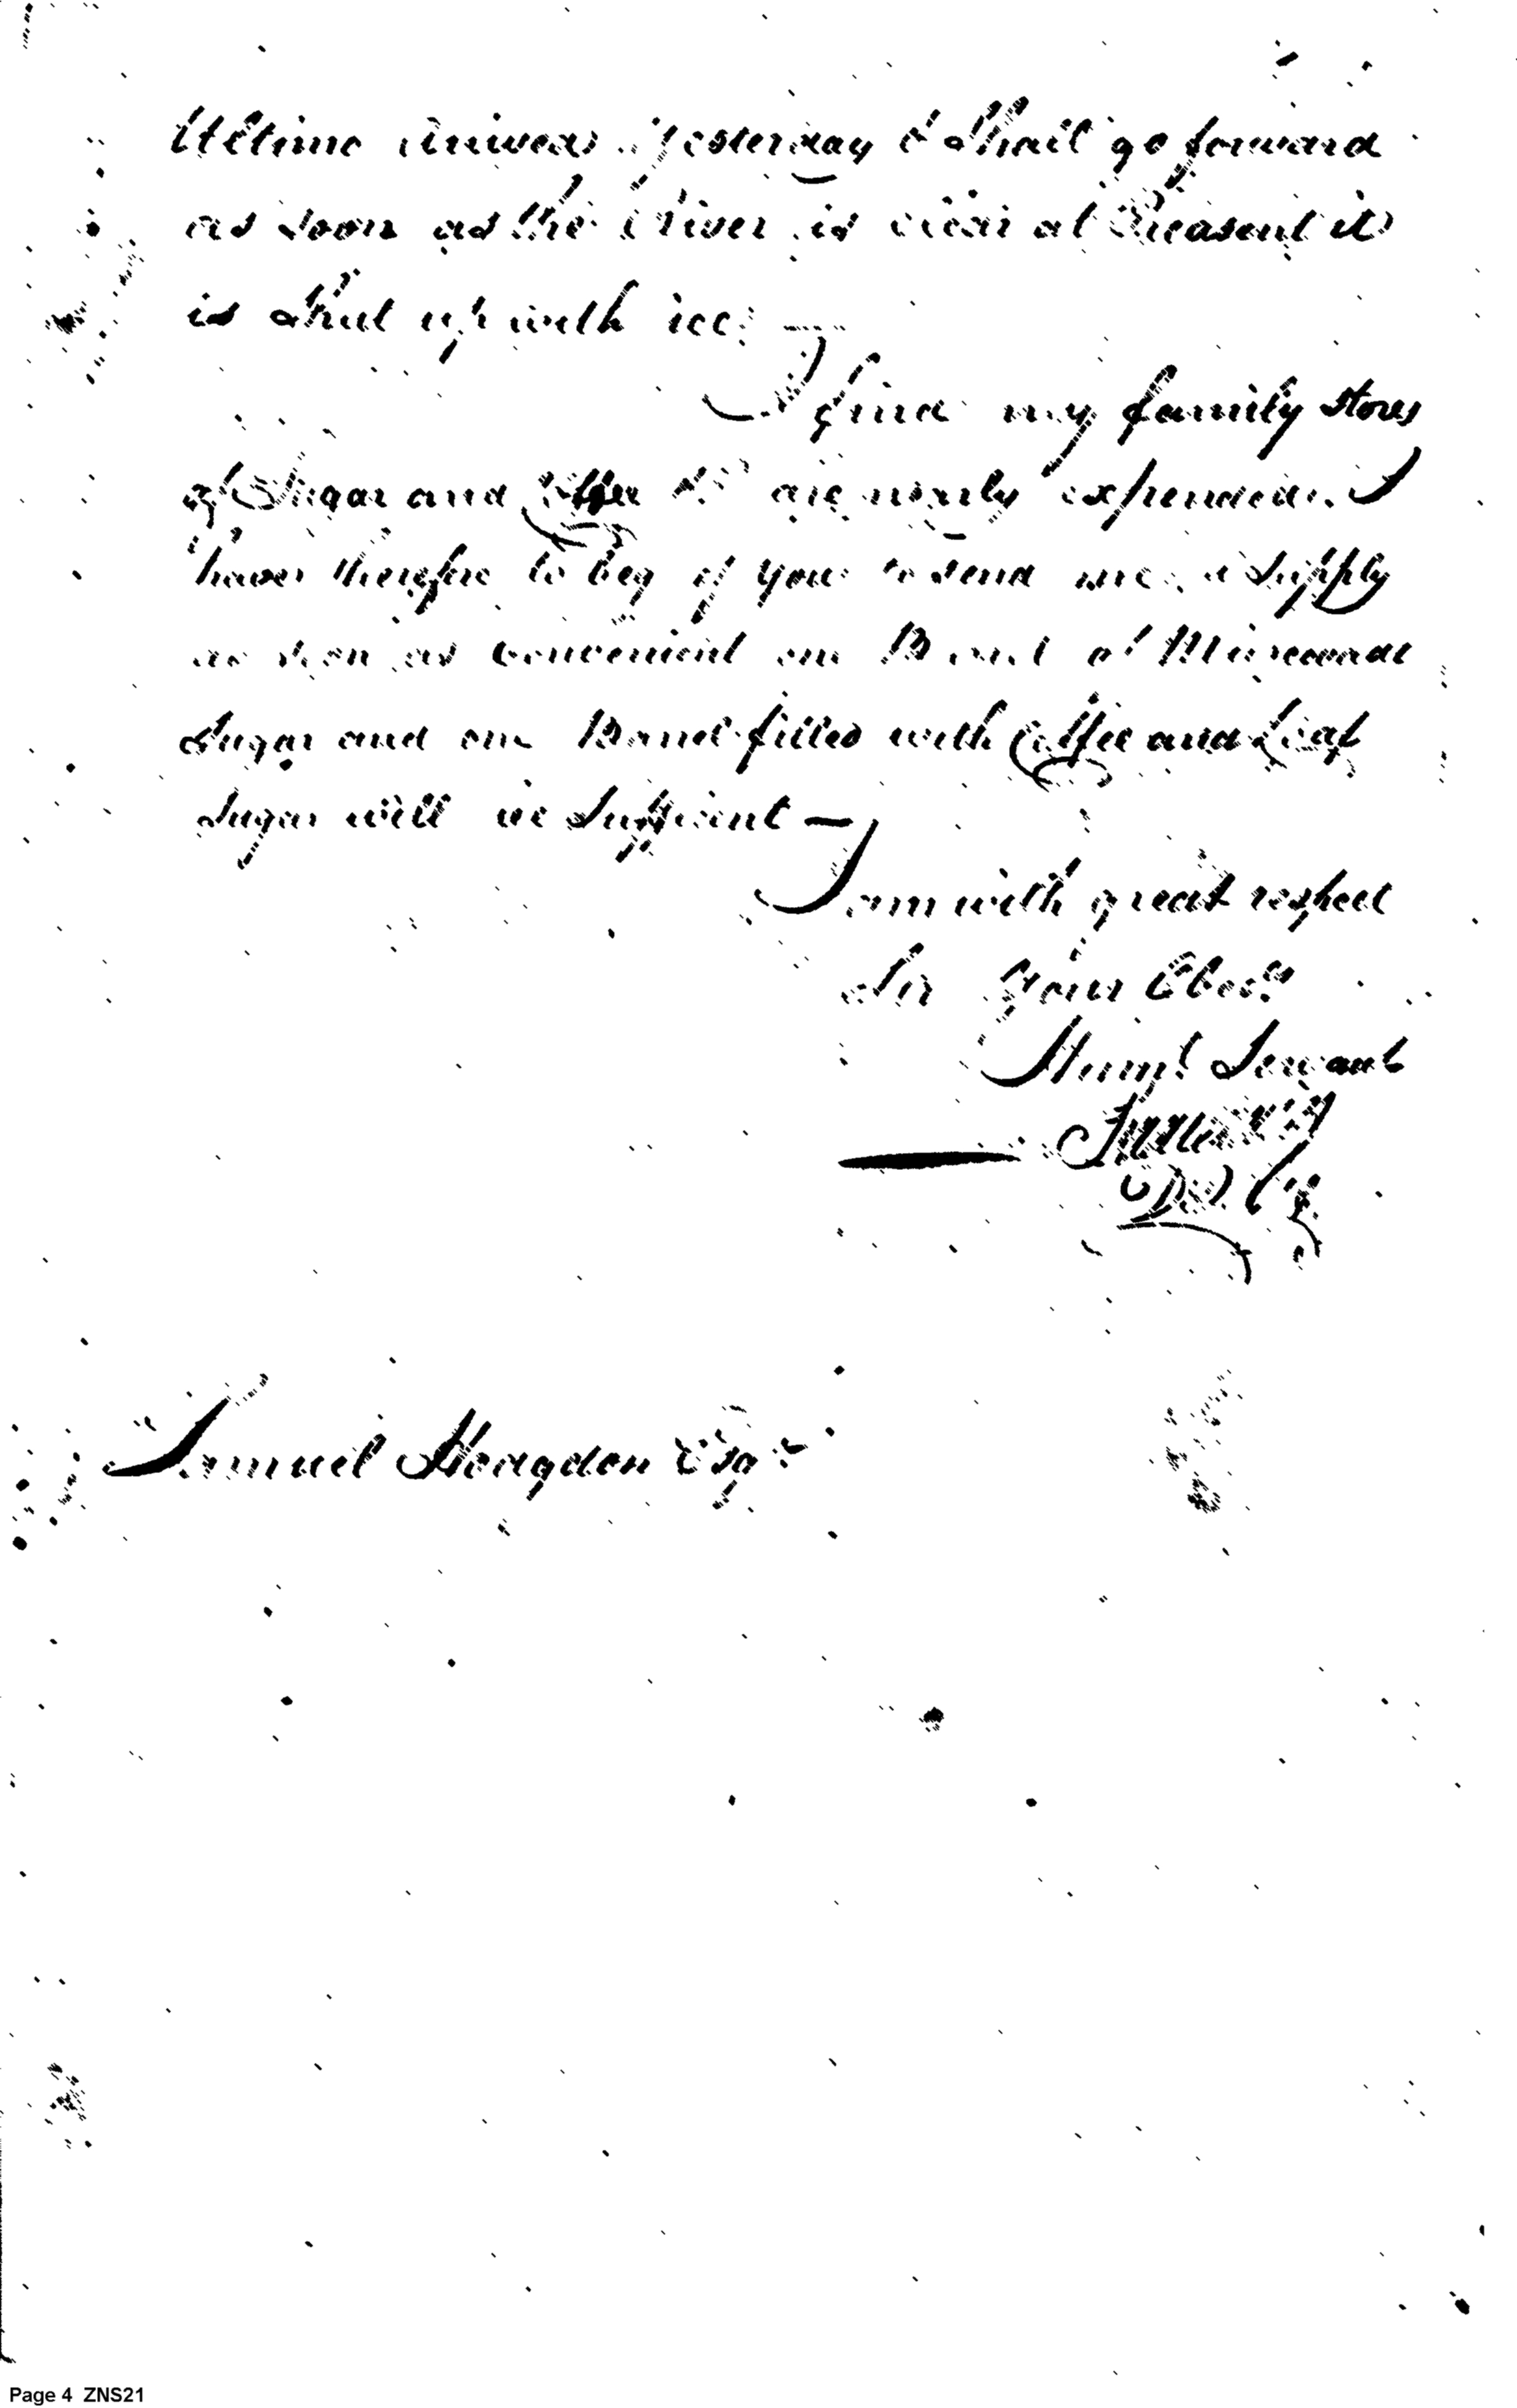 Ultimo Arrived Yesterday & Shall go forward
as soon as the River is clear at Preasent it
is Shut up with ice.
I find my family stores
of Sugar and Coffee &c are nearly expended. I
have therefore to beg of you to send me a Supply
as soon as convenient one Barrel of Muscovade
Sugar and one Barrel filled with Coffee and Loaf
Sugar will be Sufficient —
I am with great respect
Sir Your Obedt
Huml Servant
Samuel Hodgdon Esqr
Page 4 ZNS21